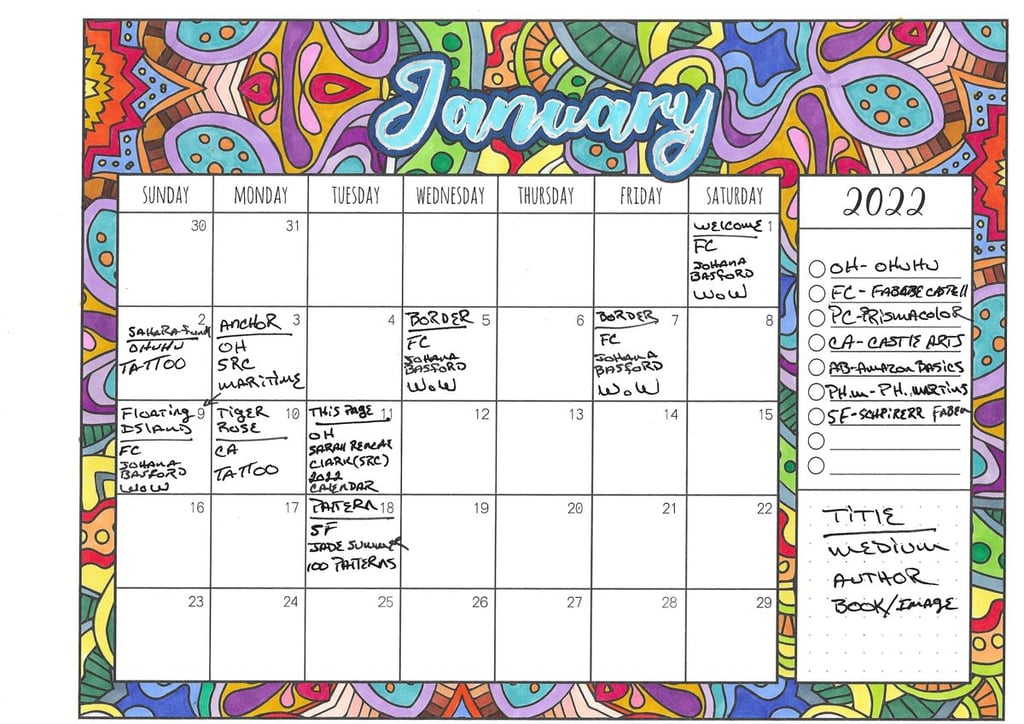 January
SUNDAY MONDAY TUESDAY WEDNESDAY THURSDAY FRIDAY SATURDAY
2022
30
31
WELCOME 1
FC
JOHANA
BASFORD
WOW
2
OHUHU
TATTOO
ANCHOR 3
OH
SRC
MARITIME
4
BORDER 5
FC
JOHANA
BASFORD
WOW
6
BORDER 7
FC
JOHANA
BASFORD
WOW
8
FLOATING 9
ISLAND
FC
JOHANA
BASFORD
WOW
TIGER 10
ROSE
CA
TATTOO
THIS PAGE 11
OH
SARAH
CLARK (SRC)
2022
CALENDAR
12
13
14
15
16
17
PATTERN 18
SF
JADE SUMMER
100 PATTERNS
19
20
21
22
23
24
25
26
27
28
29
OH- OHUHU
FC- FABABE CASTELL
PC-PRISMACOLOR
CA- CASTLE ARTS
AB-AMAZON BASICS
PH.M- PH. MARTINS
SF-
TITLE
MEDIUM
AUTHOR
BOOK/IMAGE